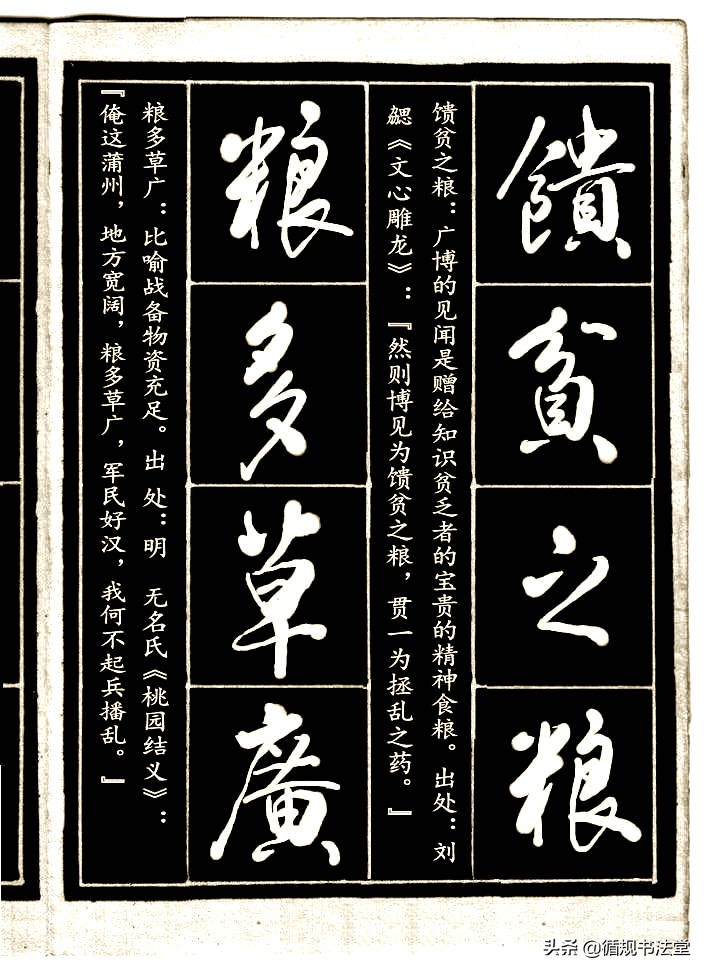 饋貧之粮
馈贫之粮：广博的见闻是赠给知识贫乏者的宝贵的精神食粮。出处：刘
勰《文心雕龙》：『然则博见为馈贫之粮，贯一为拯乱之药。』
粮多草廣
粮多草广：比喻战备物资充足。出处：明 无名氏《桃园结义》：
『俺这蒲州，地方宽阔，粮多草广，军民好汉，我何不起兵播乱。』
头条 @循规书法堂